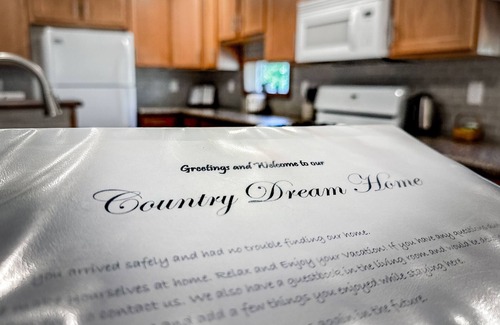 Greetings and Welcome to our
Country Dream Home
you arrived safely and had no trouble finding our home.
yourselves at home. Relax and Enjoy your vacation! If you have any
contact us. We also have a guestbook in the living room and would
add a few things you enjoyed while staying here.
again in the future.